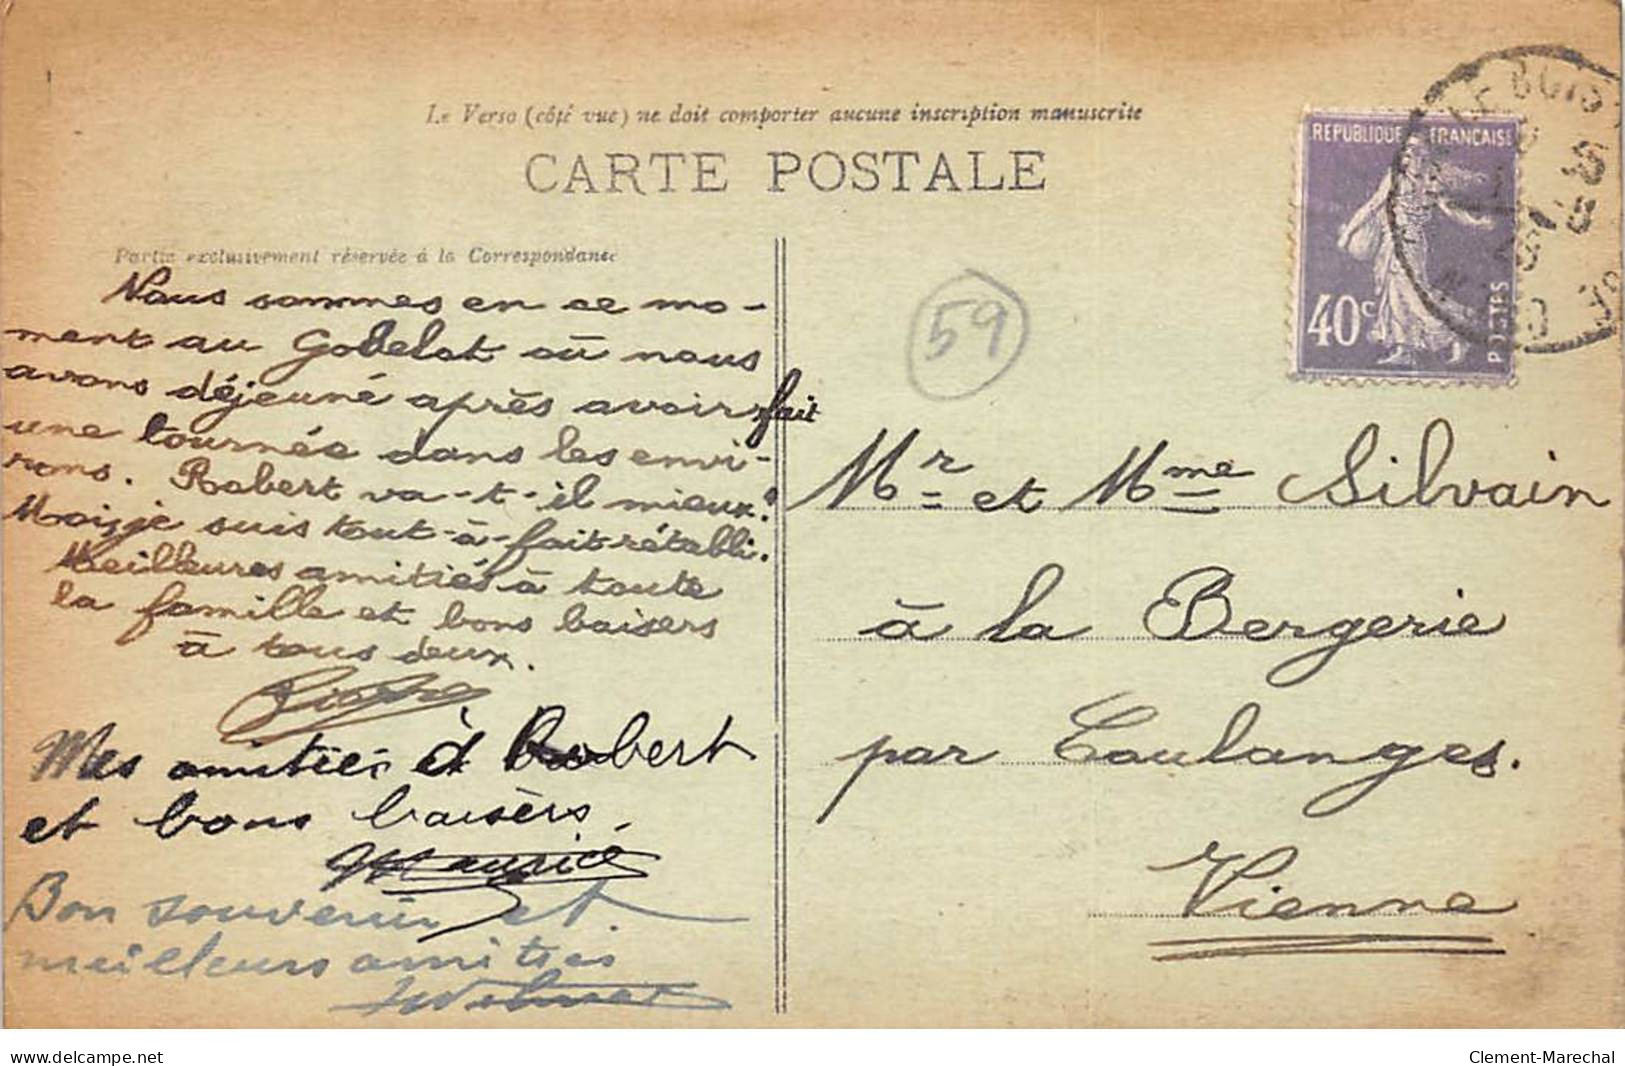 Le Verso (côté vue) ne doit comporter aucune inscription manuscrite
CARTE POSTALE
REPUBLIQUE FRANCAISE
40c
POSTES
Partie exclusivement réservée à la Correspondance
59
Nous sommes en ce mo-
ment au Gobelot où nous
avons déjeuné après avoir fait
une tournée dans les envi-
rons. Robert va-t-il mieux?
Moi je suis tout-à-fait rétabli.
Meilleures amitiés à toute
la famille et bons baisers
à tous deux.
Mes amitiés à Robert
et bons baisers
Maurice
Bon souvenir et
meilleurs amitiés
Mr et Mme Silvain
à la Bergerie
par Coulanges.
Vienne
www.delcampe.net
Clement-Marechal